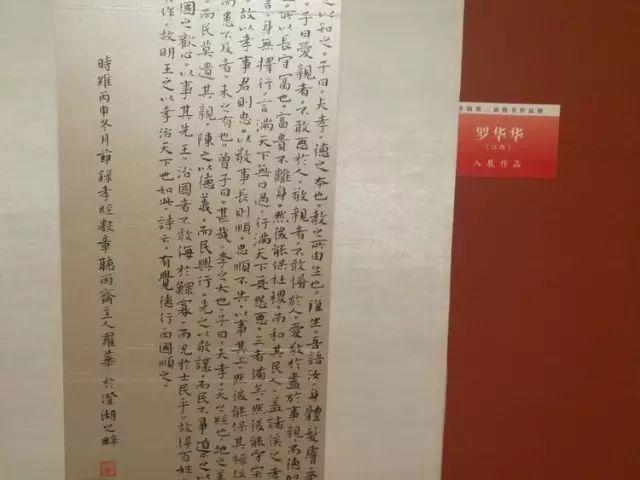 之以知之。子曰。夫孝。德之本也。教之所由生也。復坐。吾語汝。身體髮膚。受
子曰。愛親者。不敢惡於人。敬親者。不敢慢於人。愛敬於盡於事親。而德教
所以長守富也。富貴不離身。然後能保社稷。而和其民人。蓋諸侯之孝
言。身無擇行。言滿天下無口過。行滿天下無怨惡。三者備矣。然後能守宗
故以孝事君則忠。以敬事長則順。忠順不失。以事其上。然後能保其祿位
而患不及者。未之有也。曾子曰。甚哉。孝之大也。子曰。夫孝。天之經也。地之義
而民莫遺其親。陳之以德義。而民興行。先之以敬讓。而民不爭。導之以
國之歡心。以事其先王。治國者不敢侮於鰥寡。而況於士民乎。故得百姓
作。故明王之以孝治天下也如此。詩云。有覺德行。四國順之。
時雖丙申冬月節錄孝經數章聽雨齋主人羅華於澄湖之畔
罗华华
（江西）
入展作品